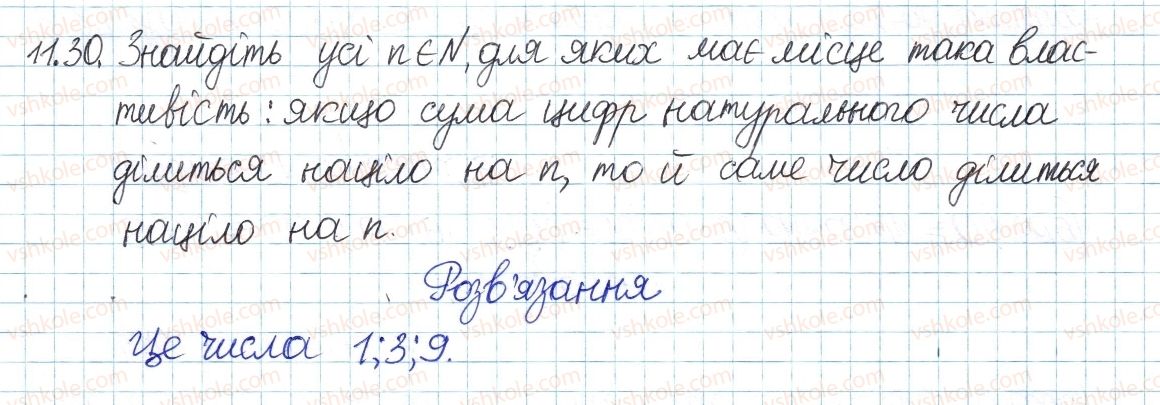 11.30. Знайдіть усі n∈N, для яких має місце така влас-
тивість: якщо сума цифр натурального числа
ділиться націло на n, то й саме число ділиться
націло на n.
Розв'язання
Це числа 1; 3; 9.